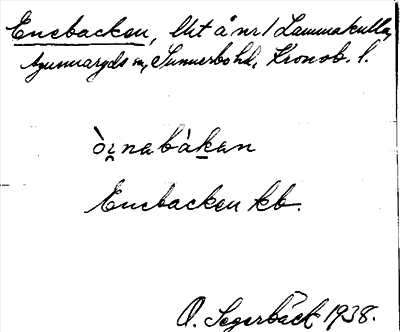 Enebacken, lht å nr 1 Lammakulla,
Agunnaryds sn, Sunnerbo hd, Kronob. l.
ὸi̯nabàkan
Enebacken kb.
O. Segerbäck 1938.